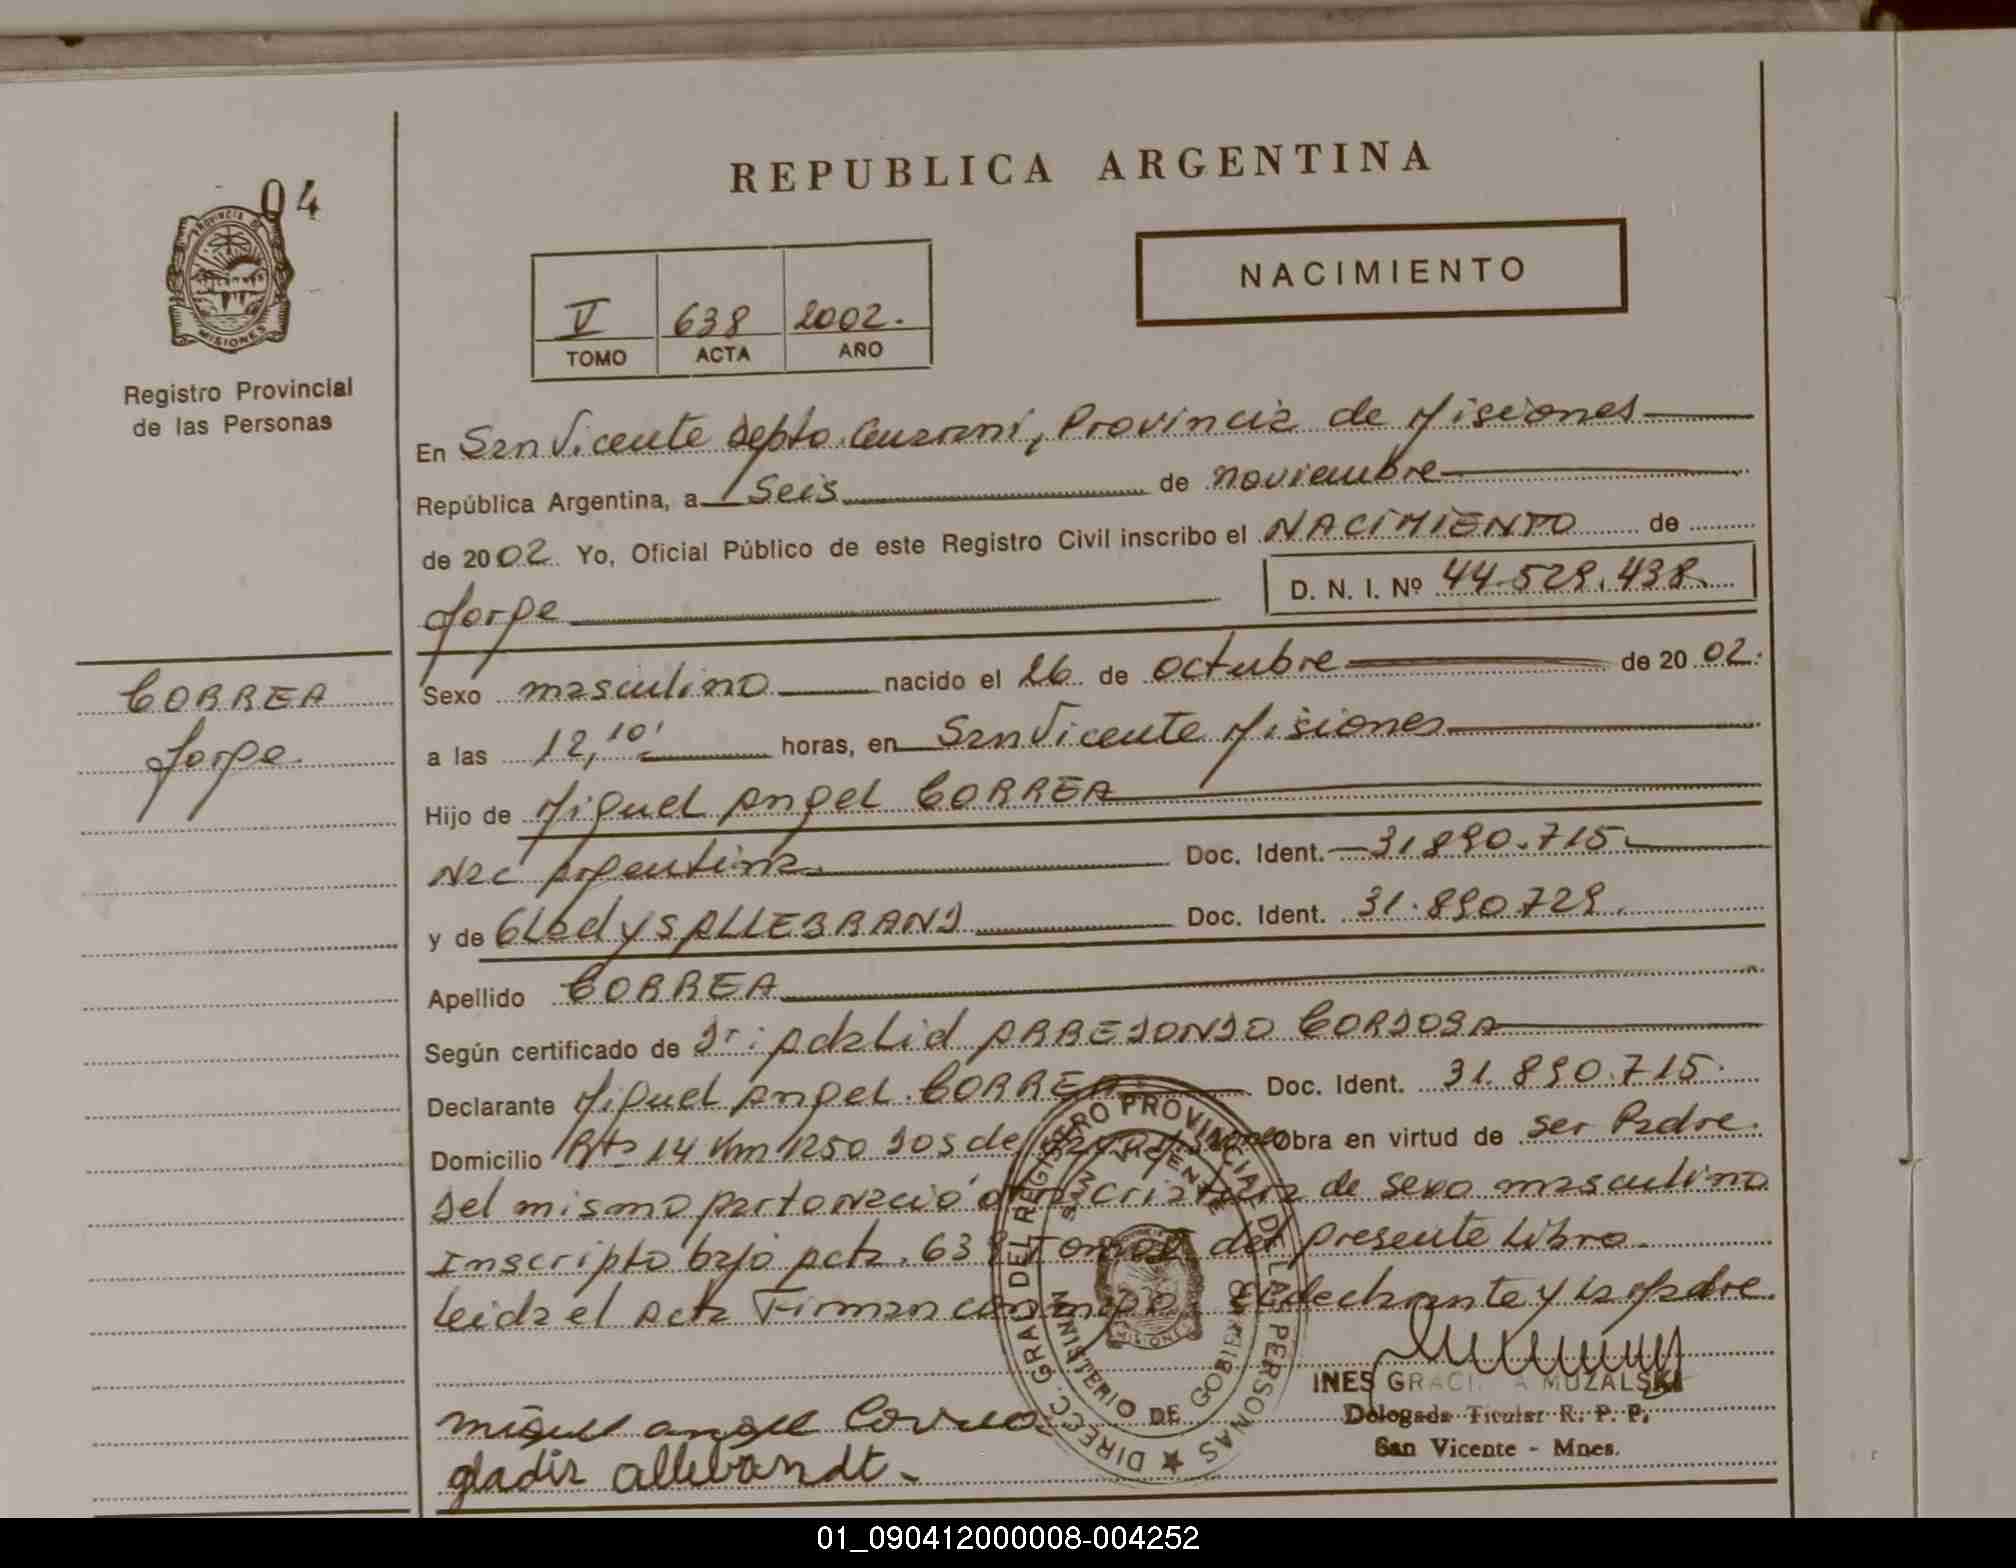 04
PROVINCIA DE
MISIONES
Registro Provincial
de las Personas
CORREA
Jorge
REPUBLICA ARGENTINA
NACIMIENTO
V 638 2002.
TOMO ACTA AÑO
En San Vicente Depto. Guarani, Provincia de Misiones
República Argentina, a Seis de noviembre
de 2002 Yo, Oficial Público de este Registro Civil inscribo el NACIMIENTO de
Jorge D. N. I. Nº 44.529.438
Sexo masculino nacido el 26 de octubre de 20 02.
a las 12,10' horas, en San Vicente Misiones
Hijo de Miguel Angel CORREA
Nac Argentina Doc. Ident. 31.890.715
y de GLadys ALLEBRAND Doc. Ident. 31.890.729.
Apellido CORREA
Según certificado de Dr: Adalid ARREDONDO CORDOBA
Declarante Miguel Angel CORREA Doc. Ident. 31.890.715.
Domicilio Rta 14 Km 1250 Dos de Obra en virtud de ser Padre.
Del mismo parto Nació otra criatura de sexo masculino
Inscripto bajo Acta. 639 Tomo V del presente Libro.
Leida el Acta Firman conmigo El declarante y la Madre.
Miguel angel Correa
gladis allebrandt.
DIREC. GRAL DEL REGISTRO PROVINCIAL DE LAS PERSONAS
SAN VICENTE
MINISTERIO DE GOBIERNO
MISIONES
INES GRACIELA MUZALSKI
Delegada Titular R. P. P.
San Vicente - Mnes.
01_090412000008-004252